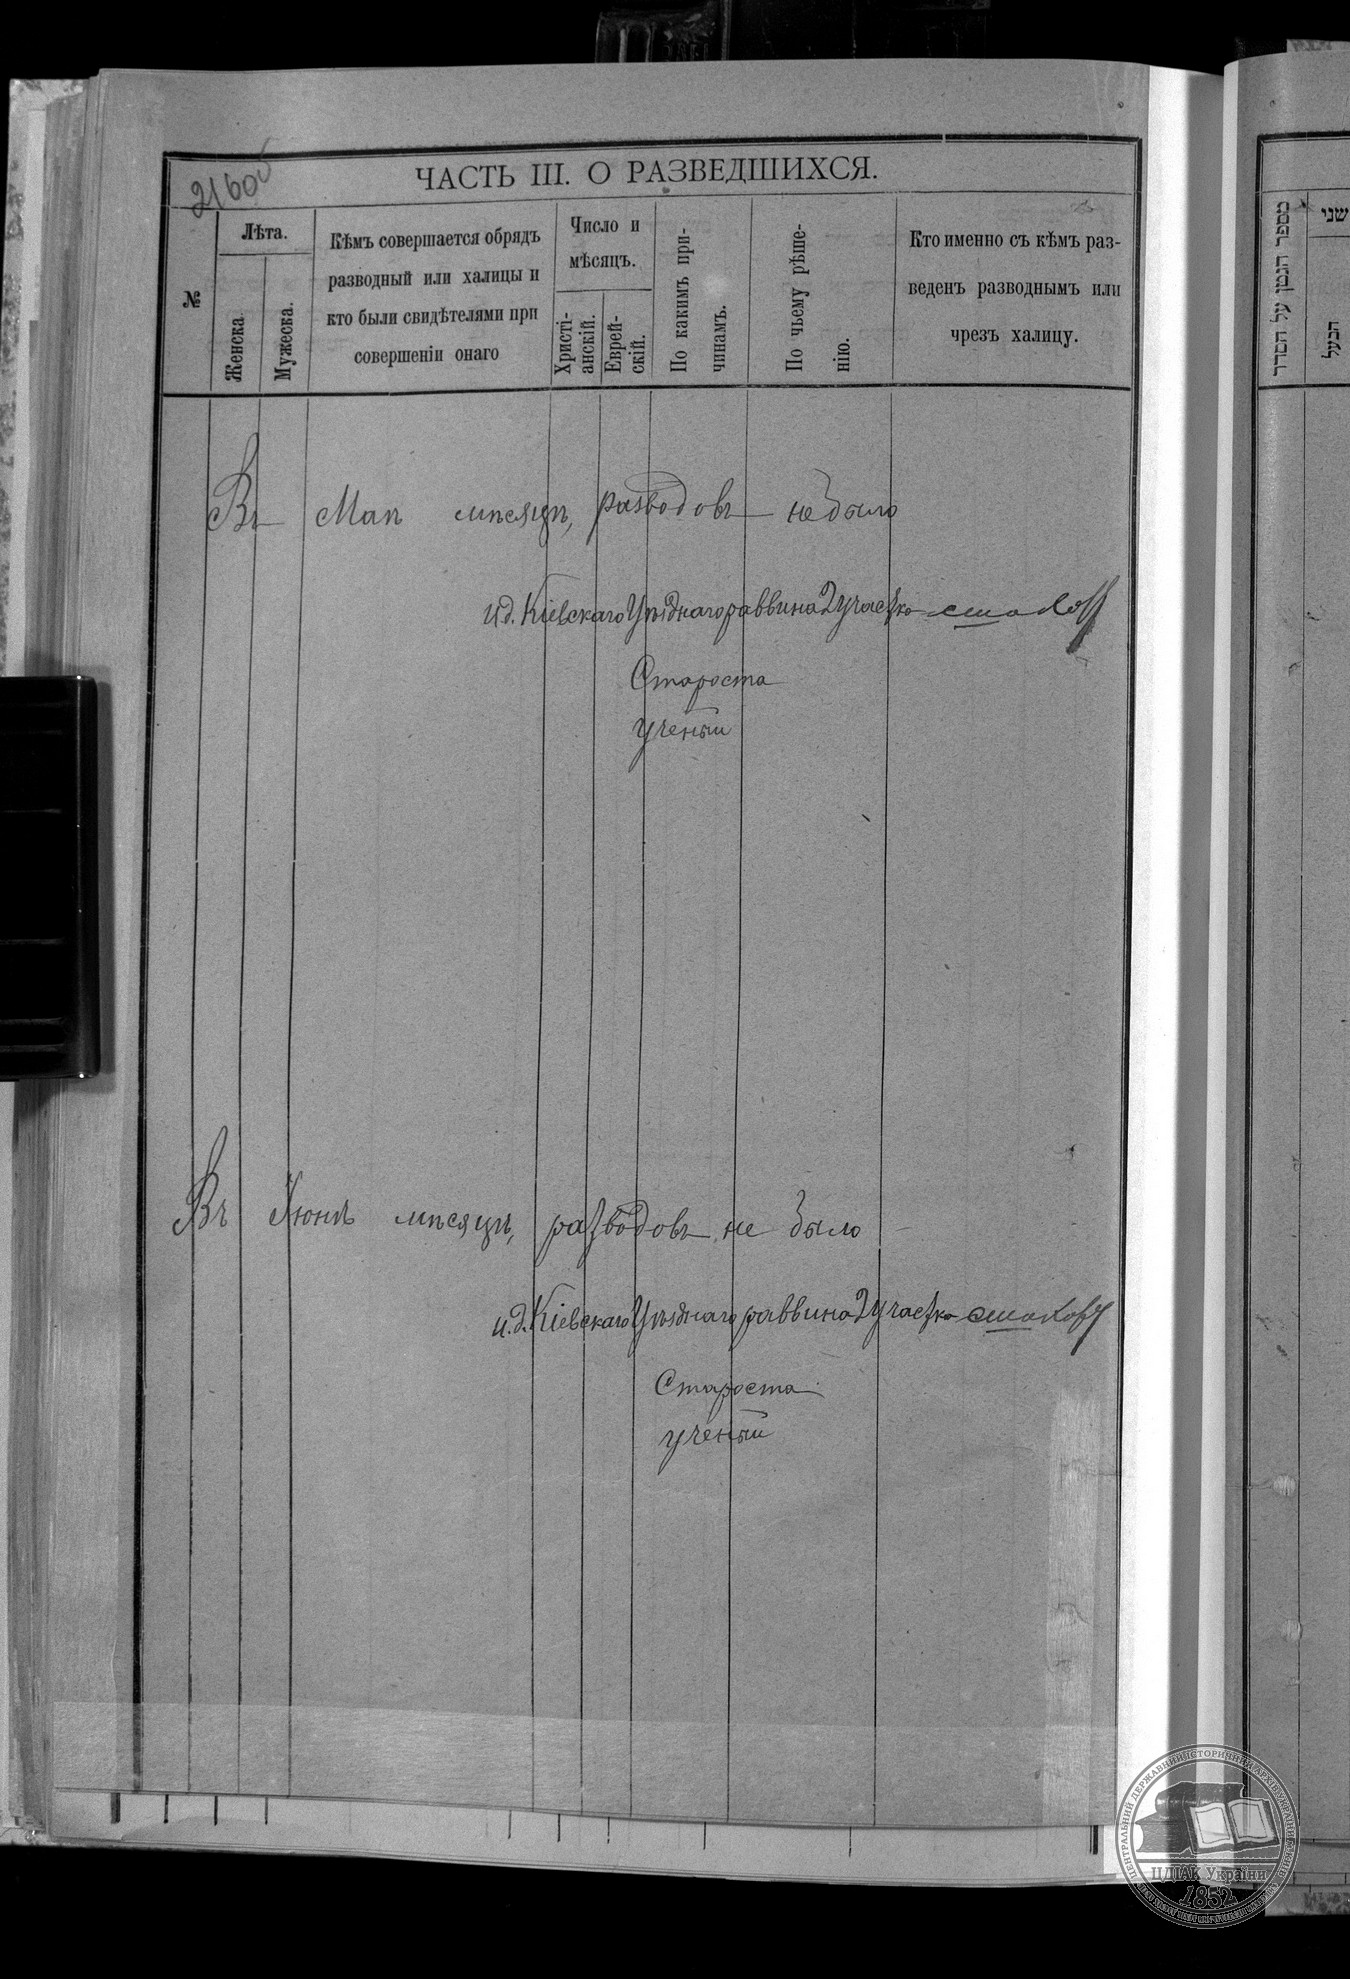 216об
ЧАСТЬ III. О РАЗВЕДШИХСЯ.
№
Лѣта.
Женска
Мужеска.
Кѣмъ совершается обрядъ
разводный или халицы и
кто были свидѣтелями при
совершеніи онаго
Число и
мѣсяцъ.
Христі-
анскій.
Еврей-
скій.
По какимъ при-
чинамъ.
По чьему рѣше-
нію.
Кто именно съ кѣмъ раз-
веденъ разводнымъ или
чрезъ халицу.
Въ Маѣ мѣсяцѣ, разводовъ не было
И.д. Кіевскаго Уѣзднаго раввина 2 участка
Староста
Ученый
Въ Іюнѣ мѣсяцѣ, разводовъ не было
и.д. Кіевскаго Уѣзднаго раввина 2 участка
Староста
ученый
מספר הגטן על הסדר
שני
הבעל
ЦДІАК України
1852